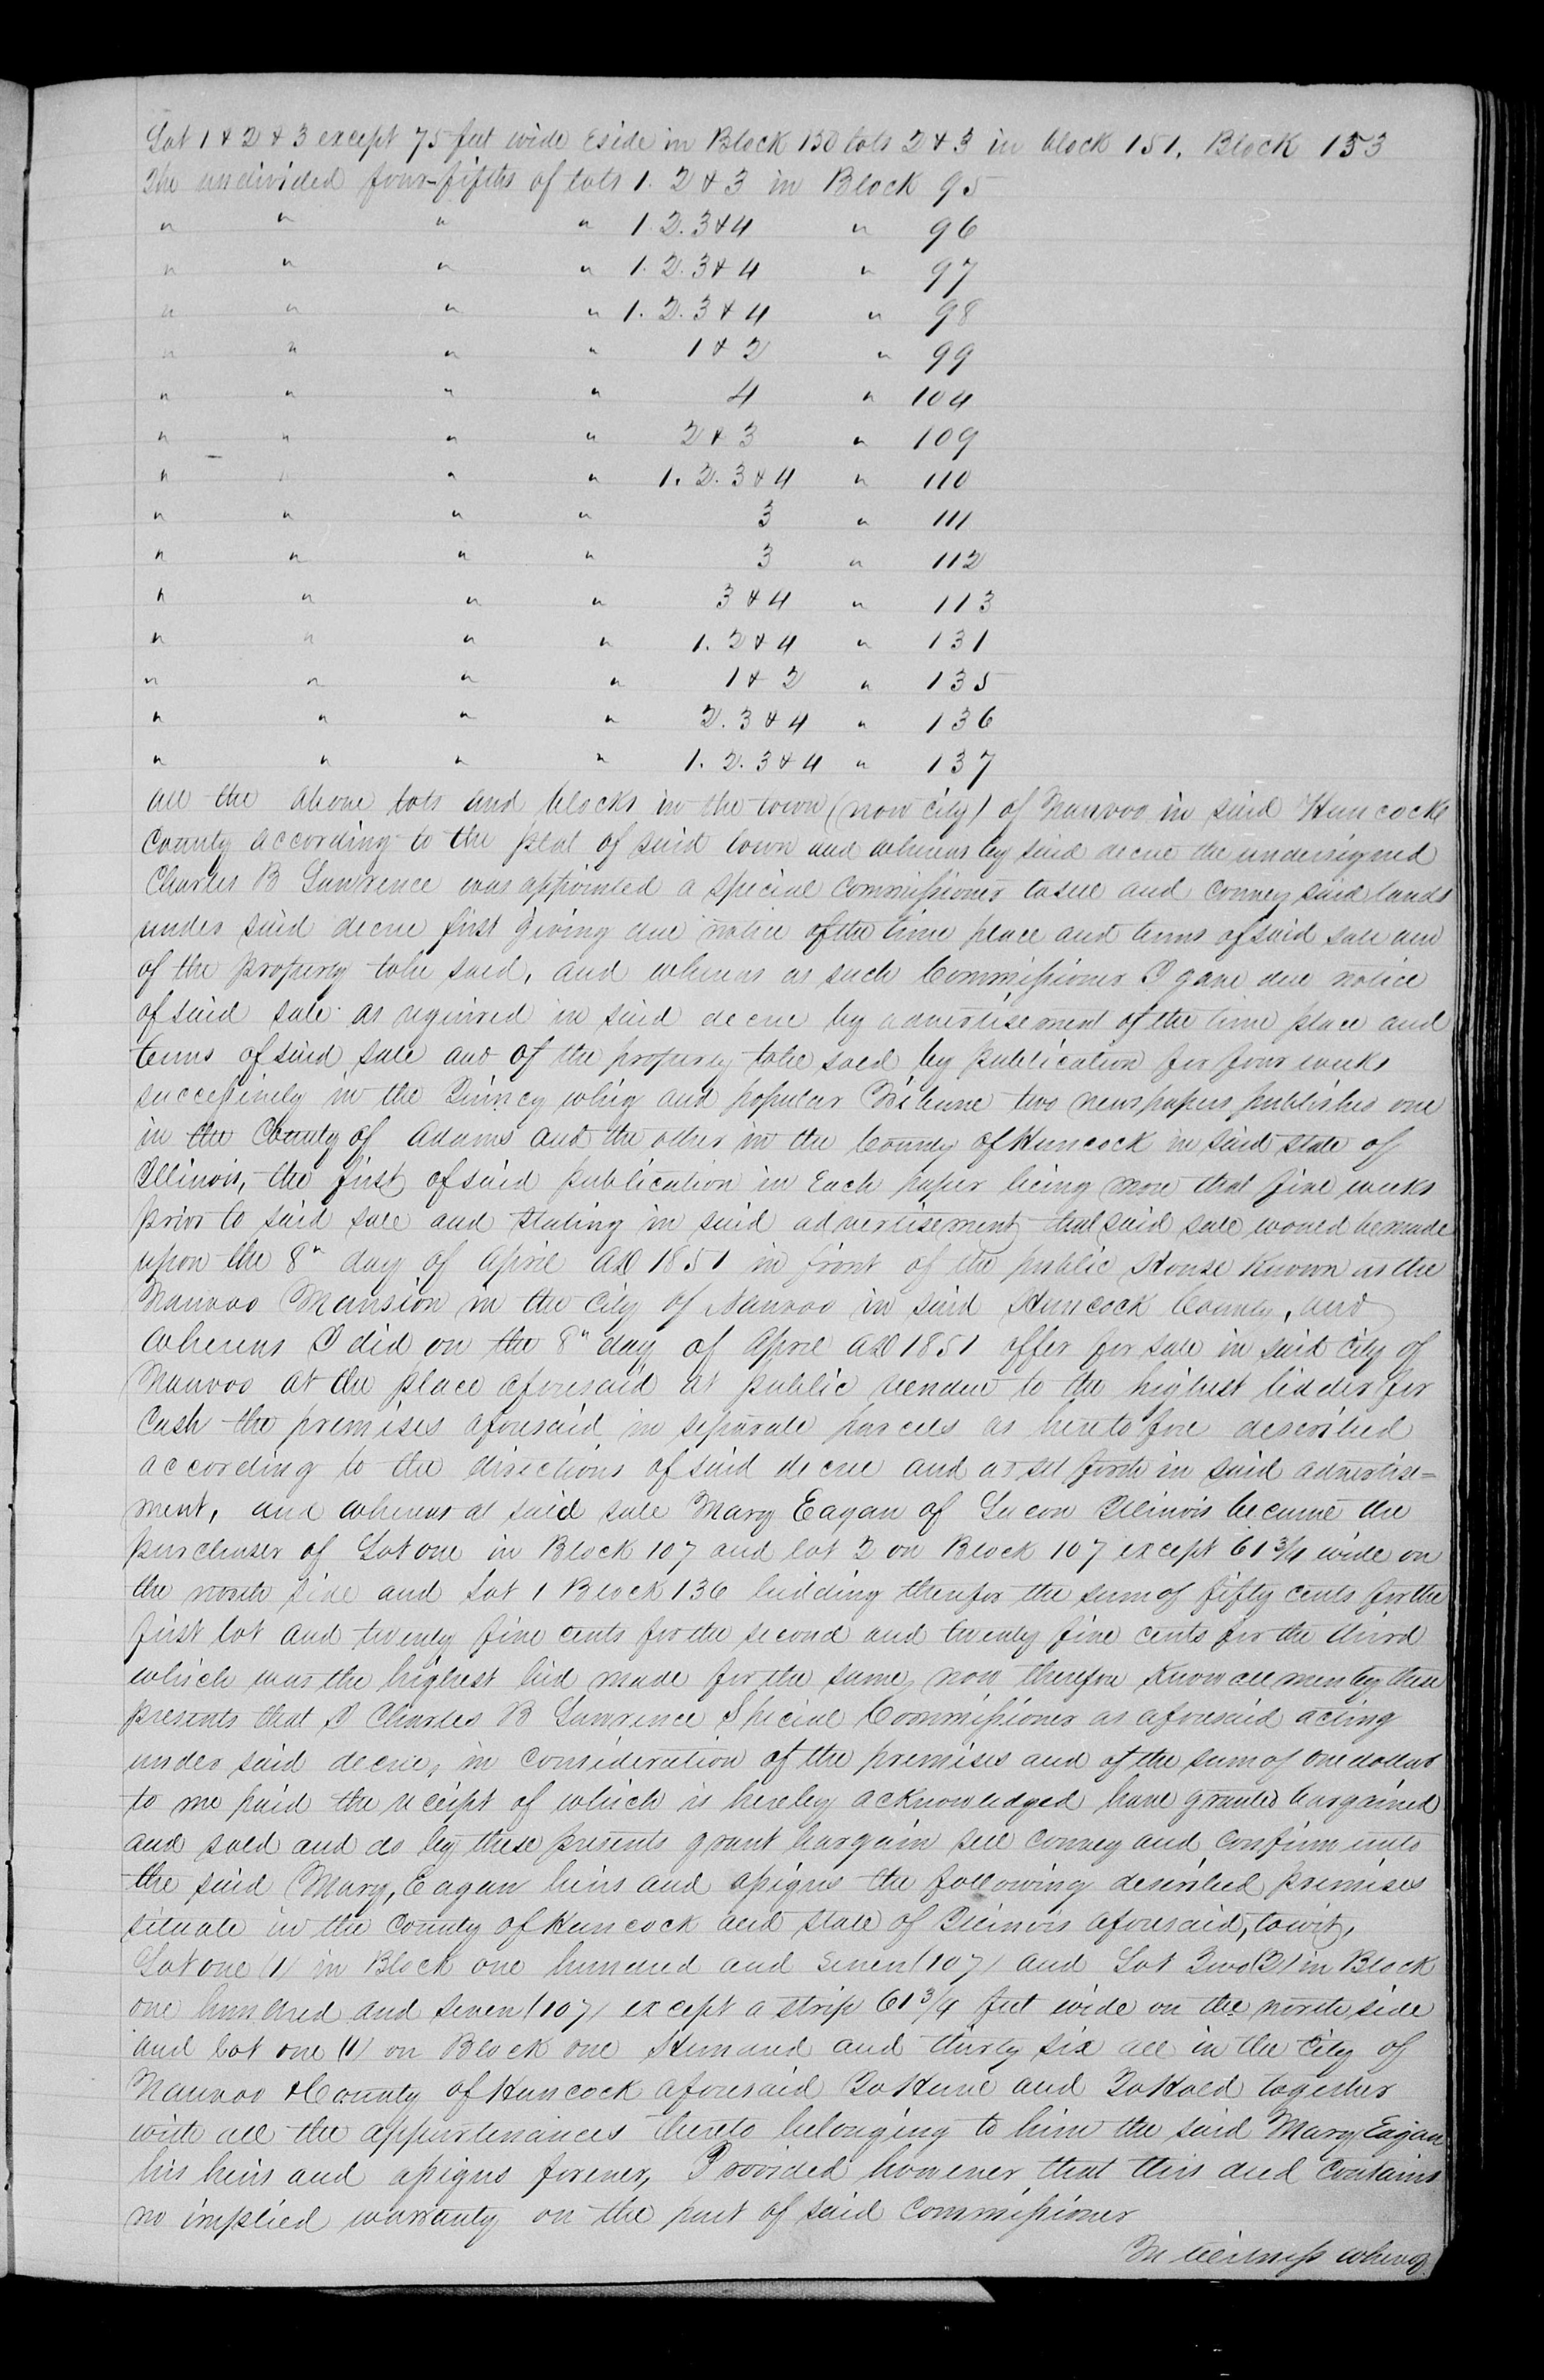 Lot 1 & 2 & 3 except 75 feet wide E side in Block 150 lots 2 & 3 in block 151. Block 153
The undivided four-fifths of lots 1. 2 & 3 in Block 95
" " " " 1. 2. 3 & 4 " 96
" " " " 1. 2. 3 & 4 " 97
" " " " 1. 2. 3 & 4 " 98
" " " " 1 & 2 " 99
" " " " 4 " 104
" " " " 2 & 3 " 109
" " " " 1. 2. 3 & 4 " 110
" " " " 3 " 111
" " " " 3 " 112
" " " " 3 & 4 " 113
" " " " 1. 2 & 4 " 131
" " " " 1 & 2 " 135
" " " " 2. 3 & 4 " 136
" " " " 1. 2. 3 & 4 " 137
all the above lots and blocks in the town (now city) of Nauvoo in said Hancock
County according to the plat of said town and whereas by said decree the undersigned
Charles B Lawrence was appointed a special Commissioner to sell and convey said lands
under said decree first giving due notice of the time place and terms of said sale and
of the property to be sold, and whereas as such Commissioner I gave due notice
of said sale as required in said decree by advertisement of the time place and
terms of said sale and of the property to be sold by publication for four weeks
successively in the Quincy whig and popular Tribune two newspapers published one
in the County of Adams and the other in the County of Hancock in said state of
Illinois, the first of said publication in Each paper being more that five weeks
prior to said sale and stating in said advertisement that said sale would be made
upon the 8" day of April AD 1851 in front of the public House Known as the
Nauvoo Mansion in the City of Nauvoo in said Hancock County, and
whereas I did on the 8" day of April AD 1851 offer for sale in said city of
Nauvoo at the place aforesaid at public vendue to the highest bidder for
Cash the premises aforesaid in separate parcels as heretofore described
according to the directions of said decree and as set forth in said advertise=
ment, and whereas at said sale Mary Eagan of Lacon Illinois became the
purchaser of Lot one in Block 107 and lot 2 on Block 107 except 61 3/4 wide on
the north side and Lot 1 Block 136 bidding therefor the sum of fifty cents for the
first lot and twenty five cents for the second and twenty five cents for the third
which was the highest bid made for the same, now therefore Know all men by these
presents that I Charles B Lawrence Special Commissioner as aforesaid acting
under said decree, in consideration of the premises and of the sum of one dollar
to me paid the receipt of which is hereby acknowledged have granted bargained
and sold and do by these presents grant bargain sell convey and confirm unto
the said Mary, Eagan heirs and assigns the following described premises
situate in the County of Hancock and state of Illinois aforesaid, towit,
Lot one (1) in Block one hundred and seven (107) and Lot Two (2) in Block
one hundred and seven (107) except a strip 61 3/4 feet wide on the north side
and lot one (1) on Block one Hundred and thirty six all in the City of
Nauvoo & County of Hancock aforesaid To Have and To Hold together
with all the appurtenances thereto belonging to him the said Mary Eagan
his heirs and assigns forever, Provided however that this deed contains
no implied warranty on the part of said Commissioner
In witness whereof